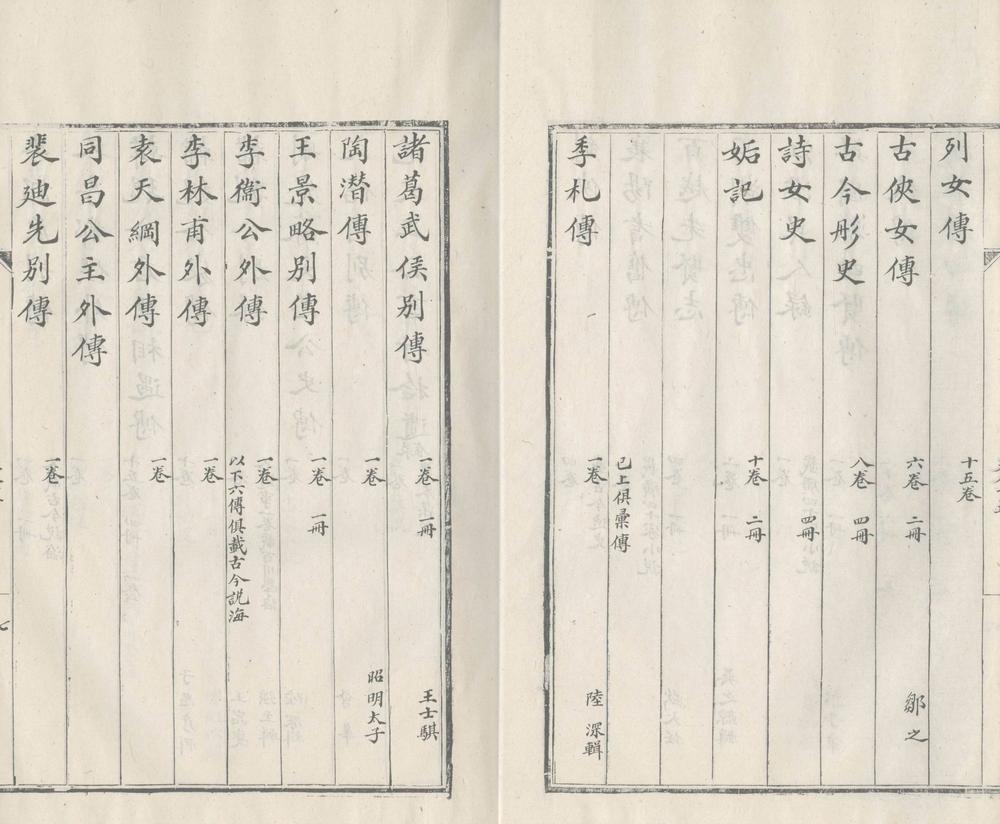 列女傳 十五卷
古俠女傳 六卷 二冊 鄒之
古今彤史 八卷 四冊
詩女史 四冊
妬記 十卷 二冊
已上俱彙傳
季札傳 一卷 陸深輯
諸葛武侯別傳 一卷 一冊 王士騏
陶潛傳 一卷 昭明太子
王景略別傳 一卷 一冊
李衞公外傳 一卷 以下六傳俱載古今説海
李林甫外傳 一卷
袁天綱外傳 一卷
同昌公主外傳
裴廸先別傳 一卷